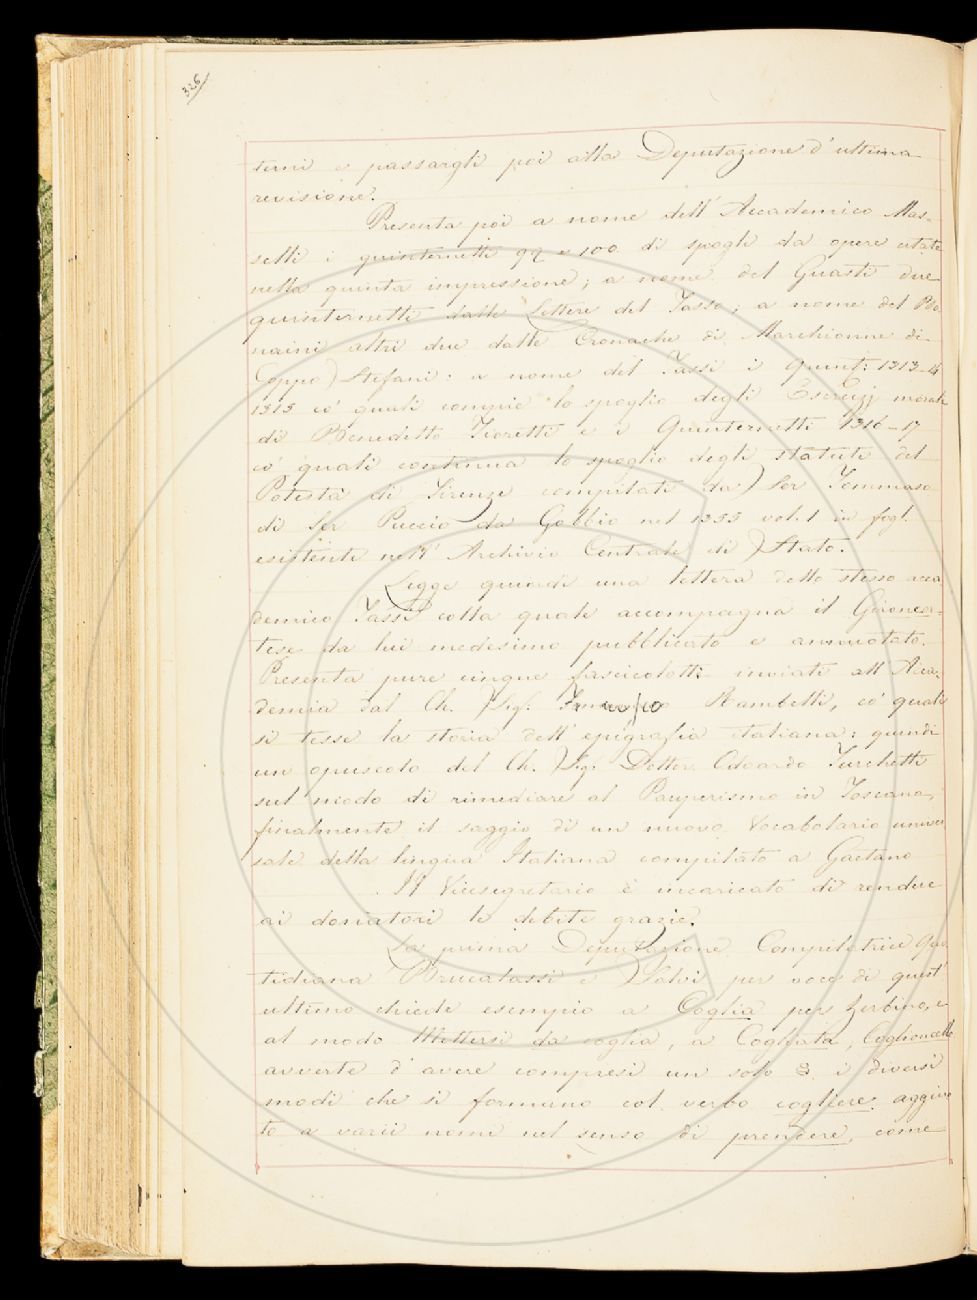 326
terni e passargli poi alla Deputazione d'ultima
revisione.
Presenta poi a nome dell'Accademico Mas-
selli i quinternetti 99 e 100 di spogli da opere citate
nella quinta impressione; a nome del Guasti due
quinternetti dalle Lettere del Tasso; a nome del Bo-
naini altri due dalle Cronache di Marchionne di
Coppo Stefani: a nome del Tassi i Quint: 1313-14
1315 co' quali compie lo spoglio degli Esercizj morali
di Benedetto Fioretti e i Quinternetti 1316-17
co' quali continua lo spoglio degli statuti del
Potestà di Firenze compilati da Ser Tommaso
di Ser Puccio da Gobbio nel 1355 vol. 1 in fogl.
esistente nell'Archivio Centrale di Stato.
Legge quindi una lettera dello stesso acca
demico Tassi colla quale accompagna il Gironcor-
tese da lui medesimo pubblicato e annotato.
Presenta pure cinque fascicoletti inviati all'Acca-
demia dal Ch. Sig. Francesco Rambelli, co' quali
si tesse la storia dell'epigrafia italiana: quindi
un opuscolo del Ch. Sig. Dottor Odoardo Turchetti
sul modo di rimediare al Pauperismo in Toscana,
finalmente il saggio di un nuovo Vocabolario univer
sale della lingua Italiana compilato a Gaetano
Il Vicesegretario è incaricato di rendere
ai donatori le debite grazie.
La prima Deputazione Compilatrice Quo
tidiana Brucalassi e Salvi per voce di quest'
ultimo chiede esempio a Coglia per Zerbino, e
al modo Mettersi da coglia, a Cogliata, Coglioncello
avverte d'avere compresi un solo §. i diversi
modi che si formano col verbo cogliere aggiun
to a varii nomi nel senso di prendere, come